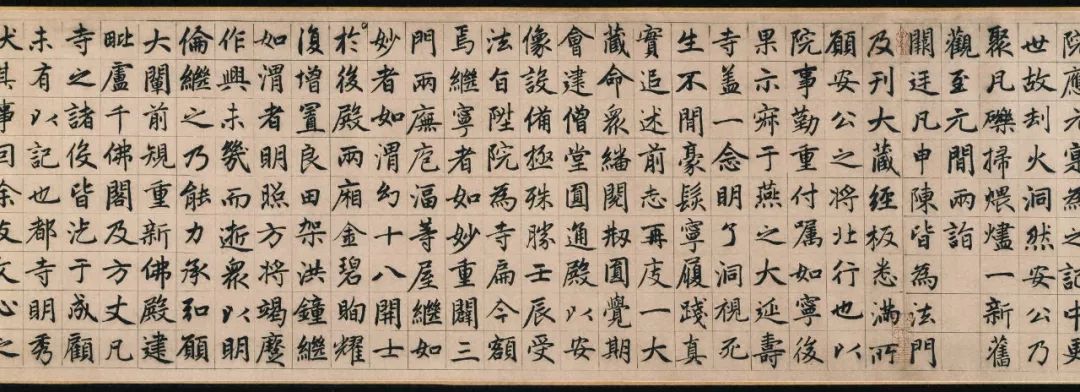 院應元寔為之記中更
世故刦火洞然安公乃
聚瓦礫掃煨燼一新舊
觀至元間兩詣
闕廷凡申陳皆為法門
及刊大藏經板悉滿所
願安公之將北行也以
院事勤重付嘱如寧後
果示寂于燕之大延壽
寺盖一念明了洞視死
生不間豪髮寧履踐真
實追述前志再庋一大
藏命衆繙閱剏圓覺期
會建僧堂圓通殿以安
像設備極殊勝壬辰受
法旨陞院為寺扁今額
焉繼寧者如妙重闢三
門兩廡庖湢等屋繼如
妙者如渭幻十八開士
於後殿兩廂金碧眴耀
復增置良田架洪鐘繼
如渭者明照方將竭蹷
作興未幾而逝衆以明
倫繼之乃能力承弘願
大闡前規重新佛殿建
毗盧千佛閣及方丈凡
寺之諸役皆汔于成顧
未有以記也都寺明秀
狀其事囙余友文心之